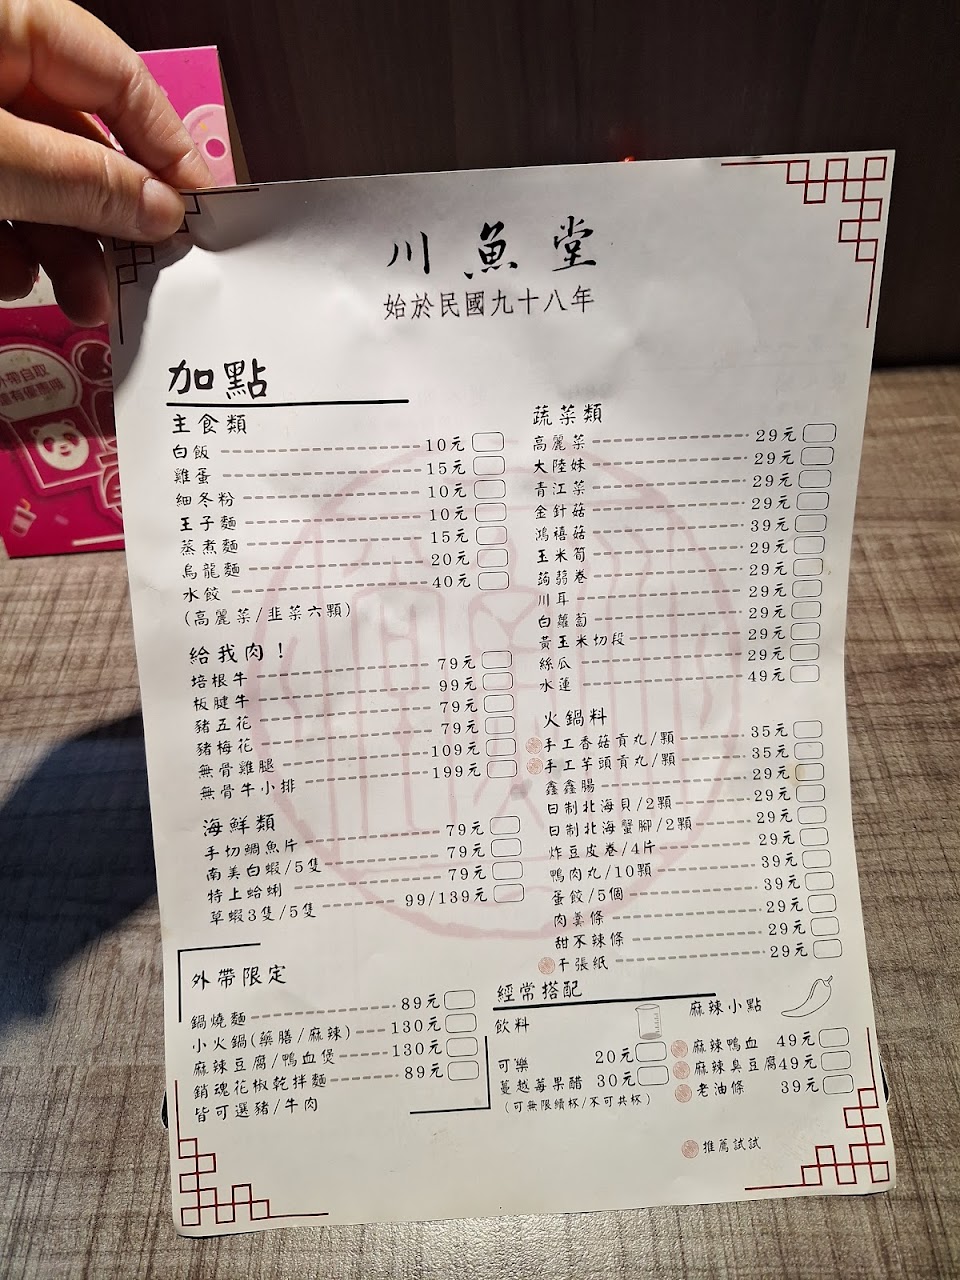 川魚堂
始於民國九十八年
加點
主食類
白飯 10元
雞蛋 15元
細冬粉 10元
王子麵 10元
蒸煮麵 15元
烏龍麵 20元
水餃 40元
(高麗菜/韭菜六顆)
給我肉！
培根牛 79元
板腱牛 99元
豬五花 79元
豬梅花 79元
無骨雞腿 109元
無骨牛小排 199元
海鮮類
手切鯛魚片 79元
南美白蝦/5隻 79元
特上蛤蜊 79元
草蝦3隻/5隻 99/139元
外帶限定
鍋燒麵 89元
小火鍋(藥膳/麻辣) 130元
麻辣豆腐/鴨血煲 130元
銷魂花椒乾拌麵 89元
皆可選豬/牛肉
蔬菜類
高麗菜 29元
大陸妹 29元
青江菜 29元
金針菇 29元
鴻禧菇 39元
玉米筍 29元
蒟蒻卷 29元
川耳 29元
白蘿蔔 29元
黃玉米切段 29元
絲瓜 29元
水蓮 49元
火鍋料
手工香菇貢丸/顆 35元
手工芋頭貢丸/顆 35元
鑫鑫腸 29元
日制北海貝/2顆 29元
日制北海蟹腳/2顆 29元
炸豆皮卷/4片 29元
鴨肉丸/10顆 39元
蛋餃/5個 39元
肉羹條 29元
甜不辣條 29元
千張紙 29元
經常搭配
飲料
可樂 20元
蔓越莓果醋 30元
(可無限續杯/不可共杯)
麻辣小點
麻辣鴨血 49元
麻辣臭豆腐 49元
老油條 39元
推薦試試
外帶自取
還有優惠哦